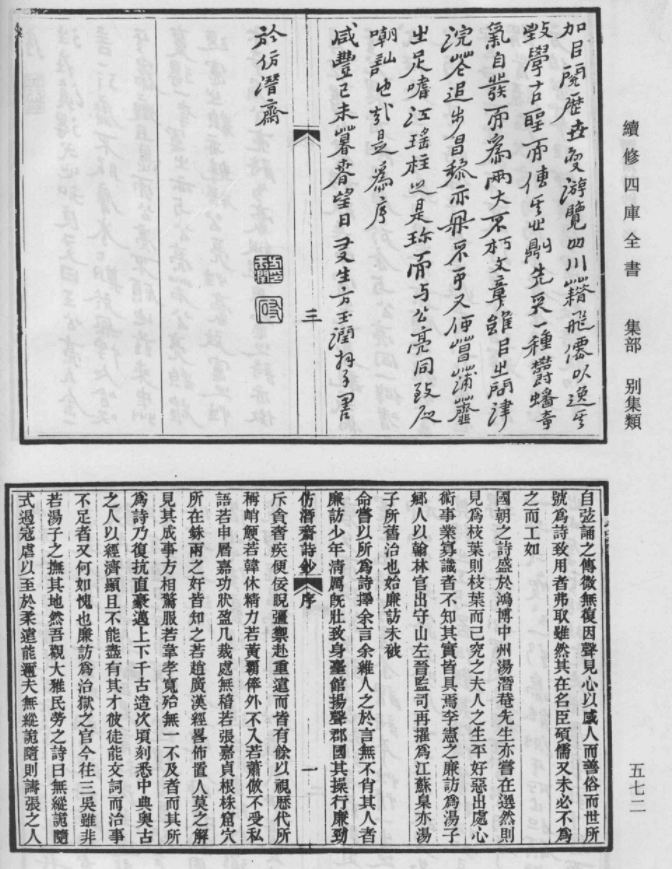 續修四庫全書　集部　別集類
五七二
加目閱歷世變游覽四川藉飛儒以逸其
氣自裝而爲兩大不朽文章雖日出問津
浣花追步昌黎亦無不可又便菖蒲
出足嗜江瑤柱之是珍而与公亮同致
嘲訕也哉是爲序
咸豐己未暮春望日友生方玉潤拜手書
於仿潛齋
三
自弦誦之傳微無復因聲見心以感人而善俗而世所
號爲詩致用者弗取雖然其在名臣碩儒又未必不爲
之而工如
國朝之詩盛於鴻博中州湯潛菴先生亦嘗在選然則
見爲枝葉則枝葉而己究之夫人之生平好惡出處心
術事業篹識者不知其實皆具焉李憲之廉訪爲湯子
鄉人以翰林官出守山左晉監司再擢爲江蘇臬亦湯
子所舊治也始廉訪未被
命嘗以所爲詩擇余言余維人之於言無不肯其人者
廉訪少年清厲旣壯致身臺館揚聲郡國其操行廉勁
仿潛齋詩鈔　序　一
斥貪耆疾便佞說彊禦赴重遠而皆有餘以視歷代所
稱峭鯁若韓休精力若黃霸俸外不入若蕭倣不受私
語若申屠嘉功狀盈几裁處無稽若張嘉貞根株窟穴
所在銖兩之奸皆知之若趙廣漢經畧佈置人莫之解
見其成事方相驚服若韋孝寬殆無一不及者而其所
爲詩乃復抗直豪邁上下千古造次頃刻悉中典奧古
之人以經濟顯且不能盡有其才彼徒能文詞而治事
不足者又何如愧也廉訪爲治獄之官今往三吳雖非
若湯子之撫其地然吾觀大雅民勞之詩曰無縱詭隨
式遏寇虐以至於柔遠能邇夫無縱詭隨則譸張之人